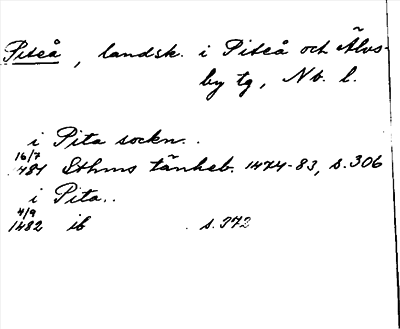 Piteå, landsk. i Piteå och Älvs-
by tg, Nb. l.
i Pita sockn..
16/7
1481 Sthms tänkeb. 1474-83, s. 306
i Pita..
4/9
1482 ib s. 372